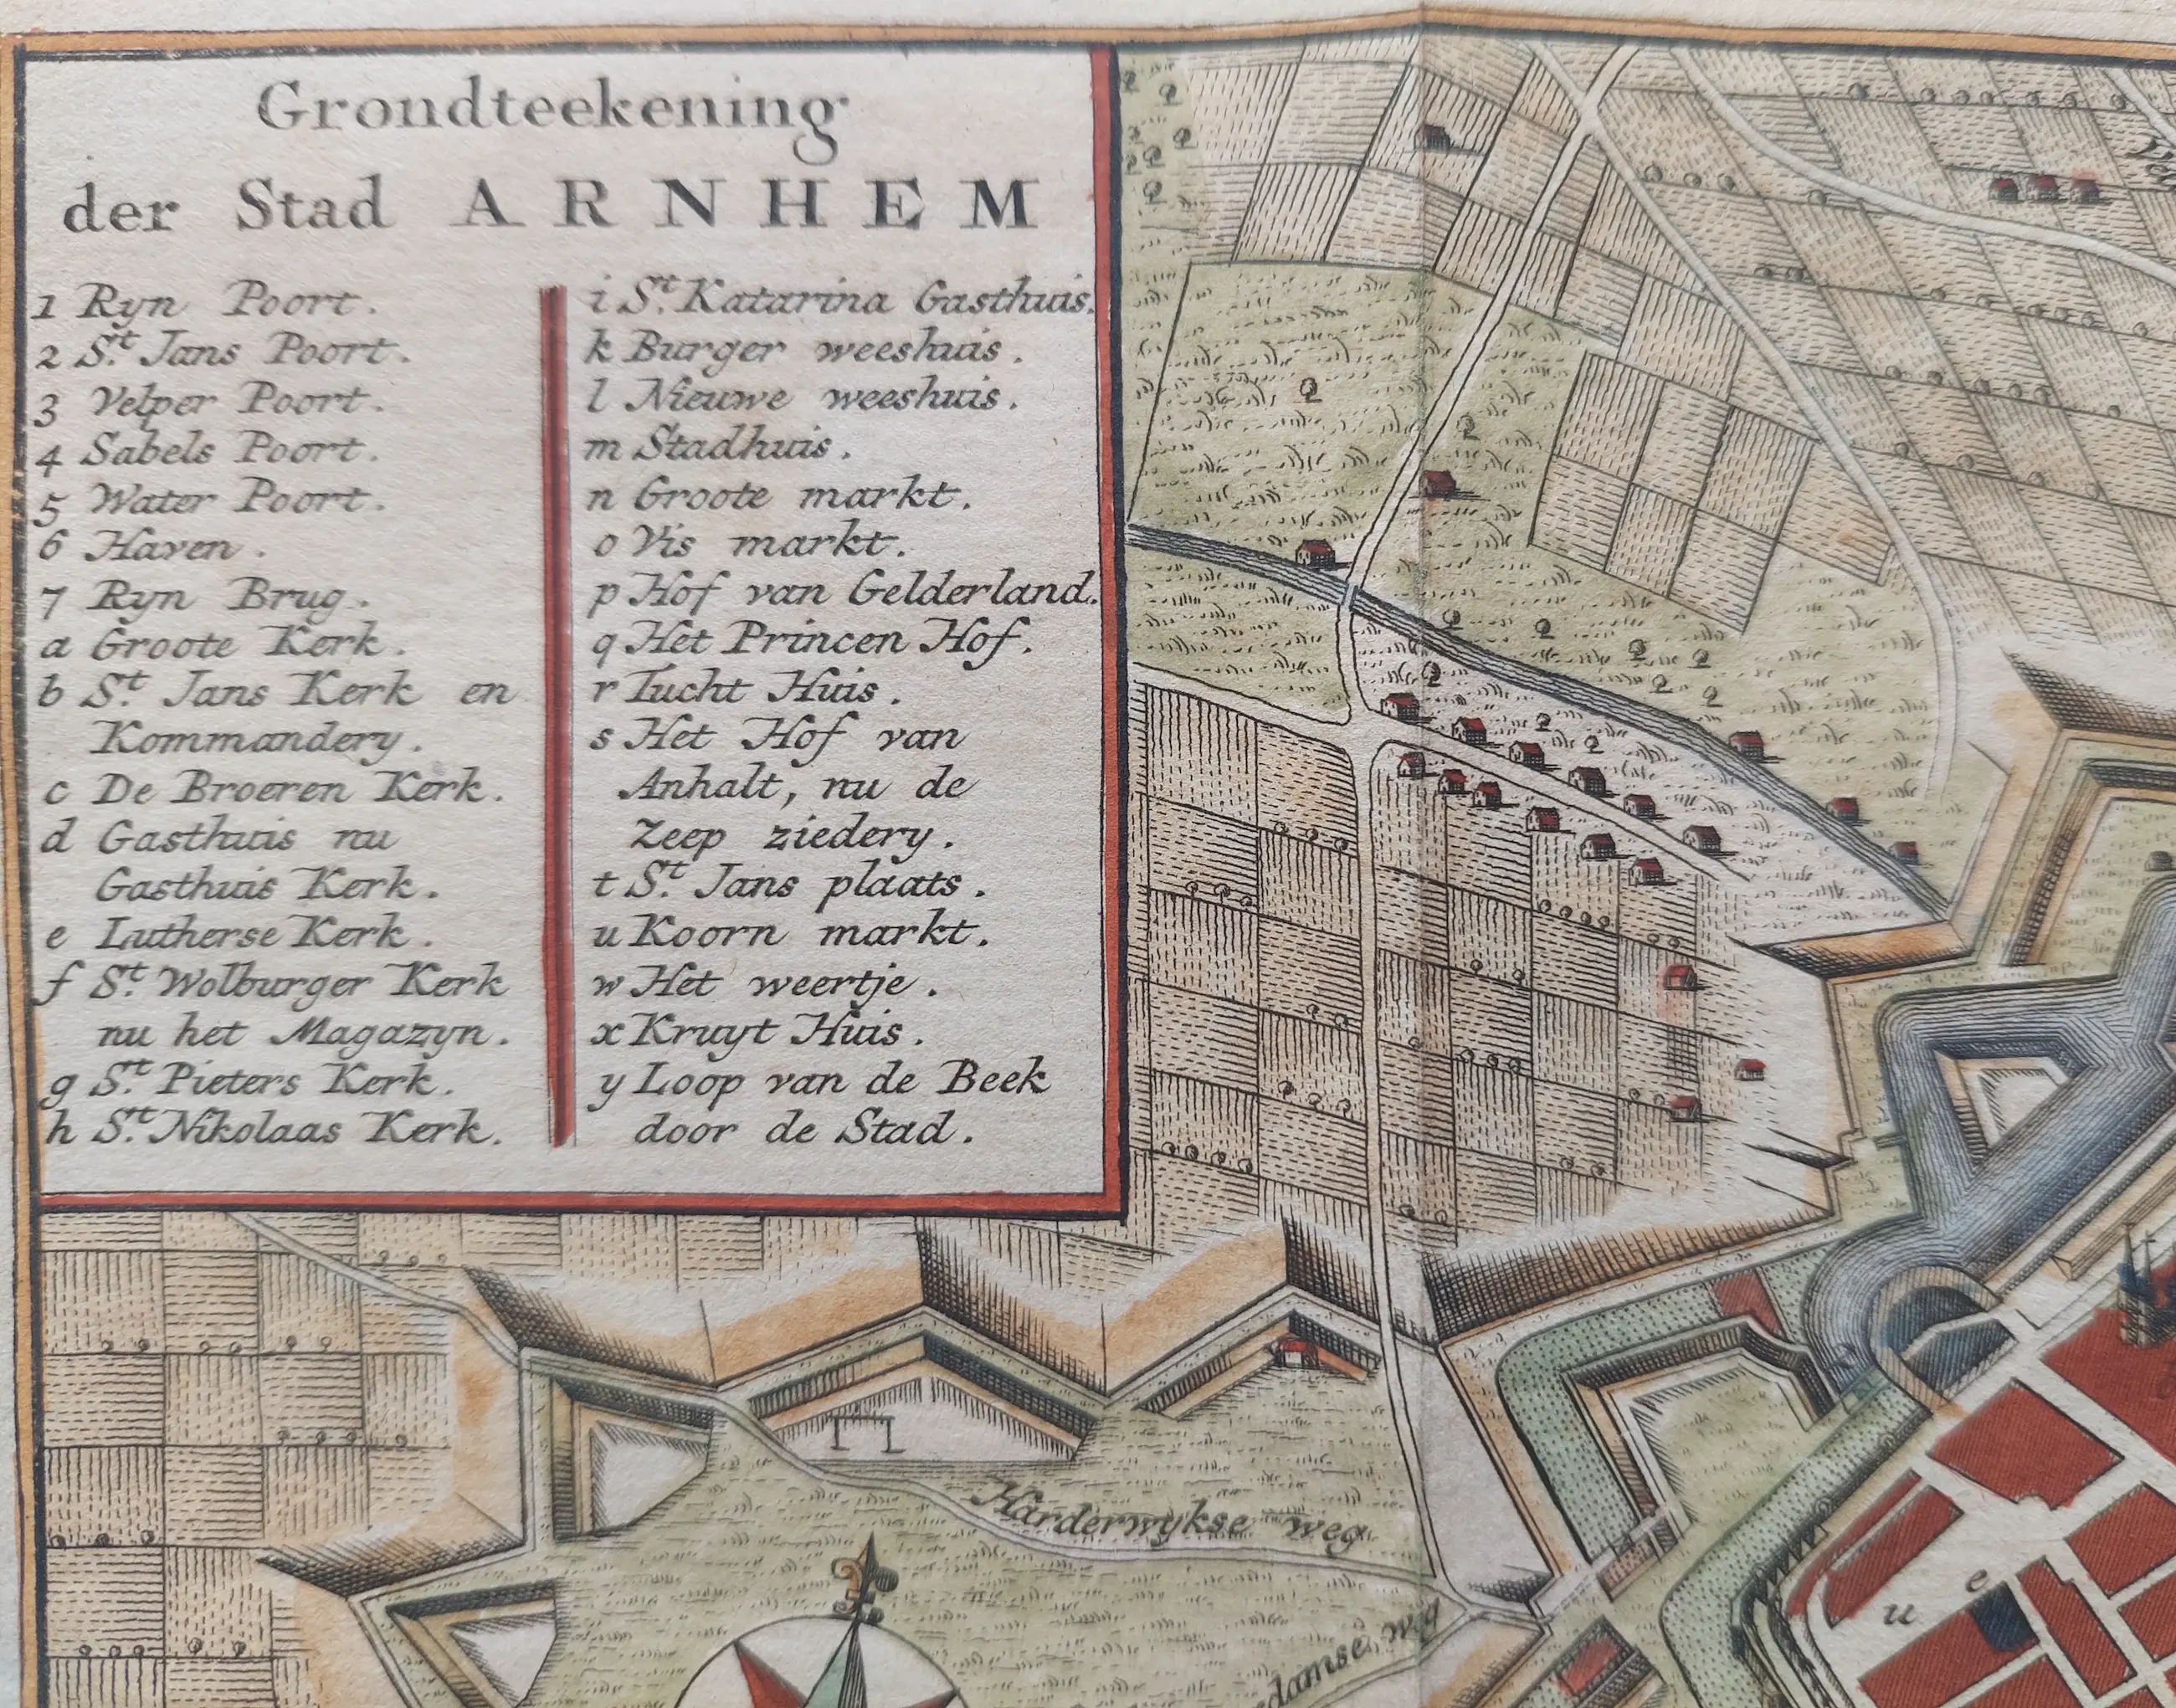 Grondteekening
der Stad ARNHEM
1 Ryn Poort.
2 St. Jans Poort.
3 Velper Poort.
4 Sabels Poort.
5 Water Poort.
6 Haven.
7 Ryn Brug.
a Groote Kerk.
b St. Jans Kerk en
Kommandery.
c De Broeren Kerk.
d Gasthuis nu
Gasthuis Kerk.
e Lutherse Kerk.
f St. Wolburger Kerk
nu het Magazyn.
g St. Pieters Kerk.
h St. Nikolaas Kerk.
i St. Katarina Gasthuis.
k Burger weeshuis.
l Nieuwe weeshuis.
m Stadhuis.
n Groote markt.
o Vis markt.
p Hof van Gelderland.
q Het Princen Hof.
r Tucht Huis.
s Het Hof van
Anhalt, nu de
Zeep ziedery.
t St. Jans plaats.
u Koorn markt.
w Het weertje.
x Kruyt Huis.
y Loop van de Beek
door de Stad.
Harderwykse weg
e
u